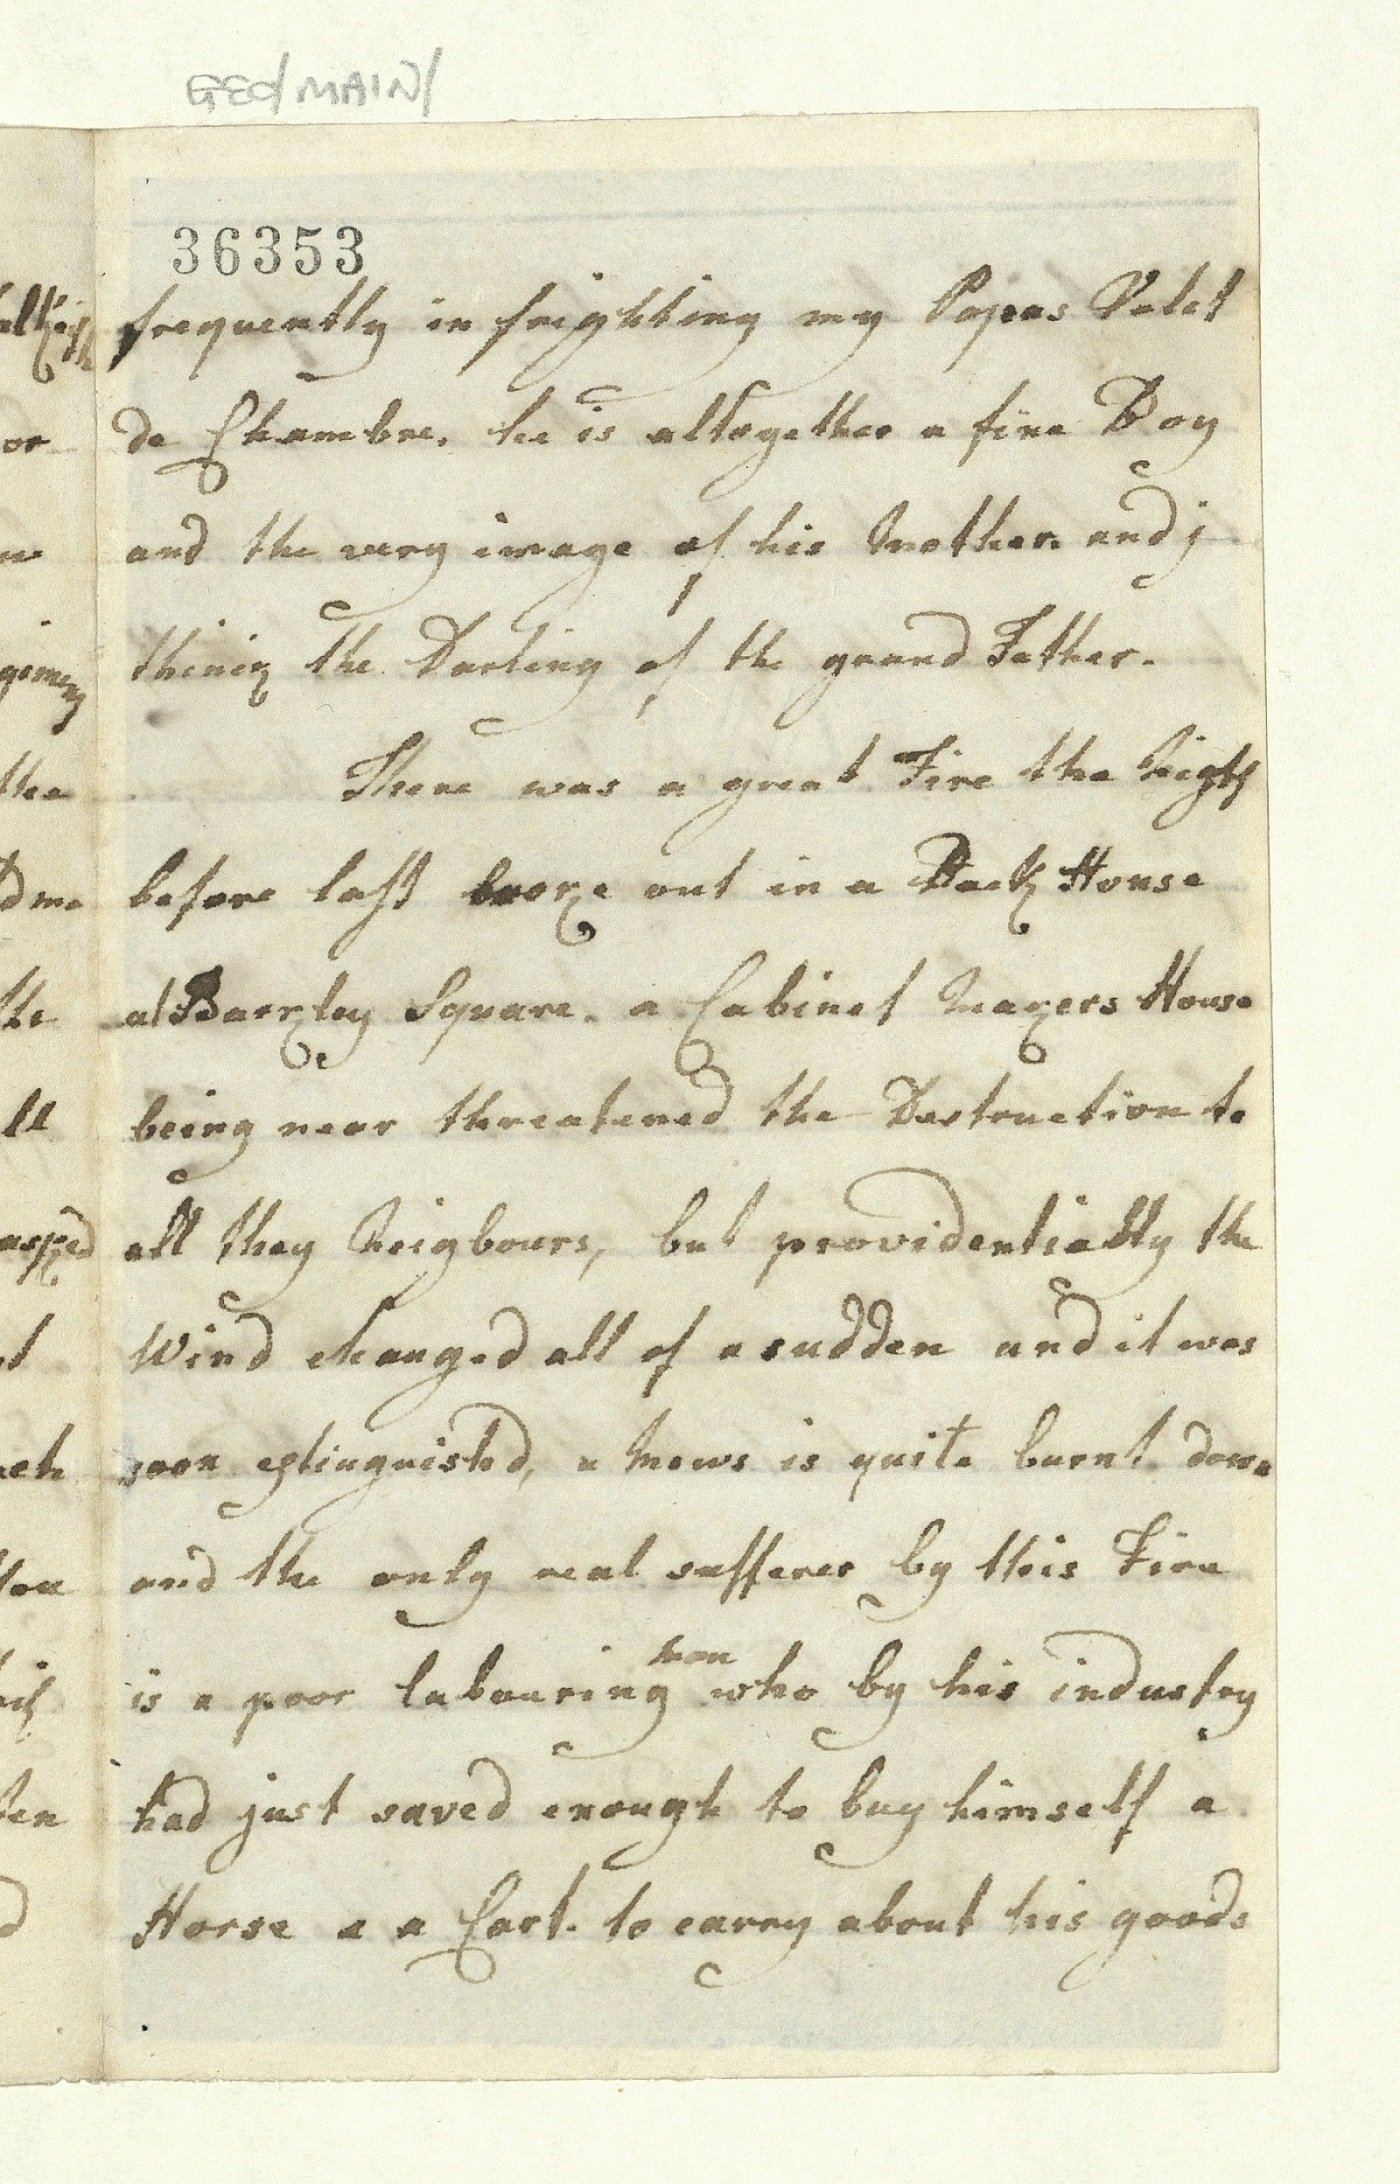 GEO/MAIN/
36353
frequently in frighting my Papas Valet
de Chambre. he is altogether a fine Boy
and the very image of his Mother. and j
thinik the Darling of the grand Father.
There was a great Fire the Night
before last broke out in a Back House
at Baerkley Square. a Cabinet Makers House
being near threatened the Destruction to
all they Neigbours, but providentially the
Wind changed all of a sudden and it was
soon extinguished, a Mews is quite burnt down
and the only real sufferer by this Fire
man
is a poor labouring who by his industry
had just saved enough to buy himself a
Horse e a Cart. to carry about his goods